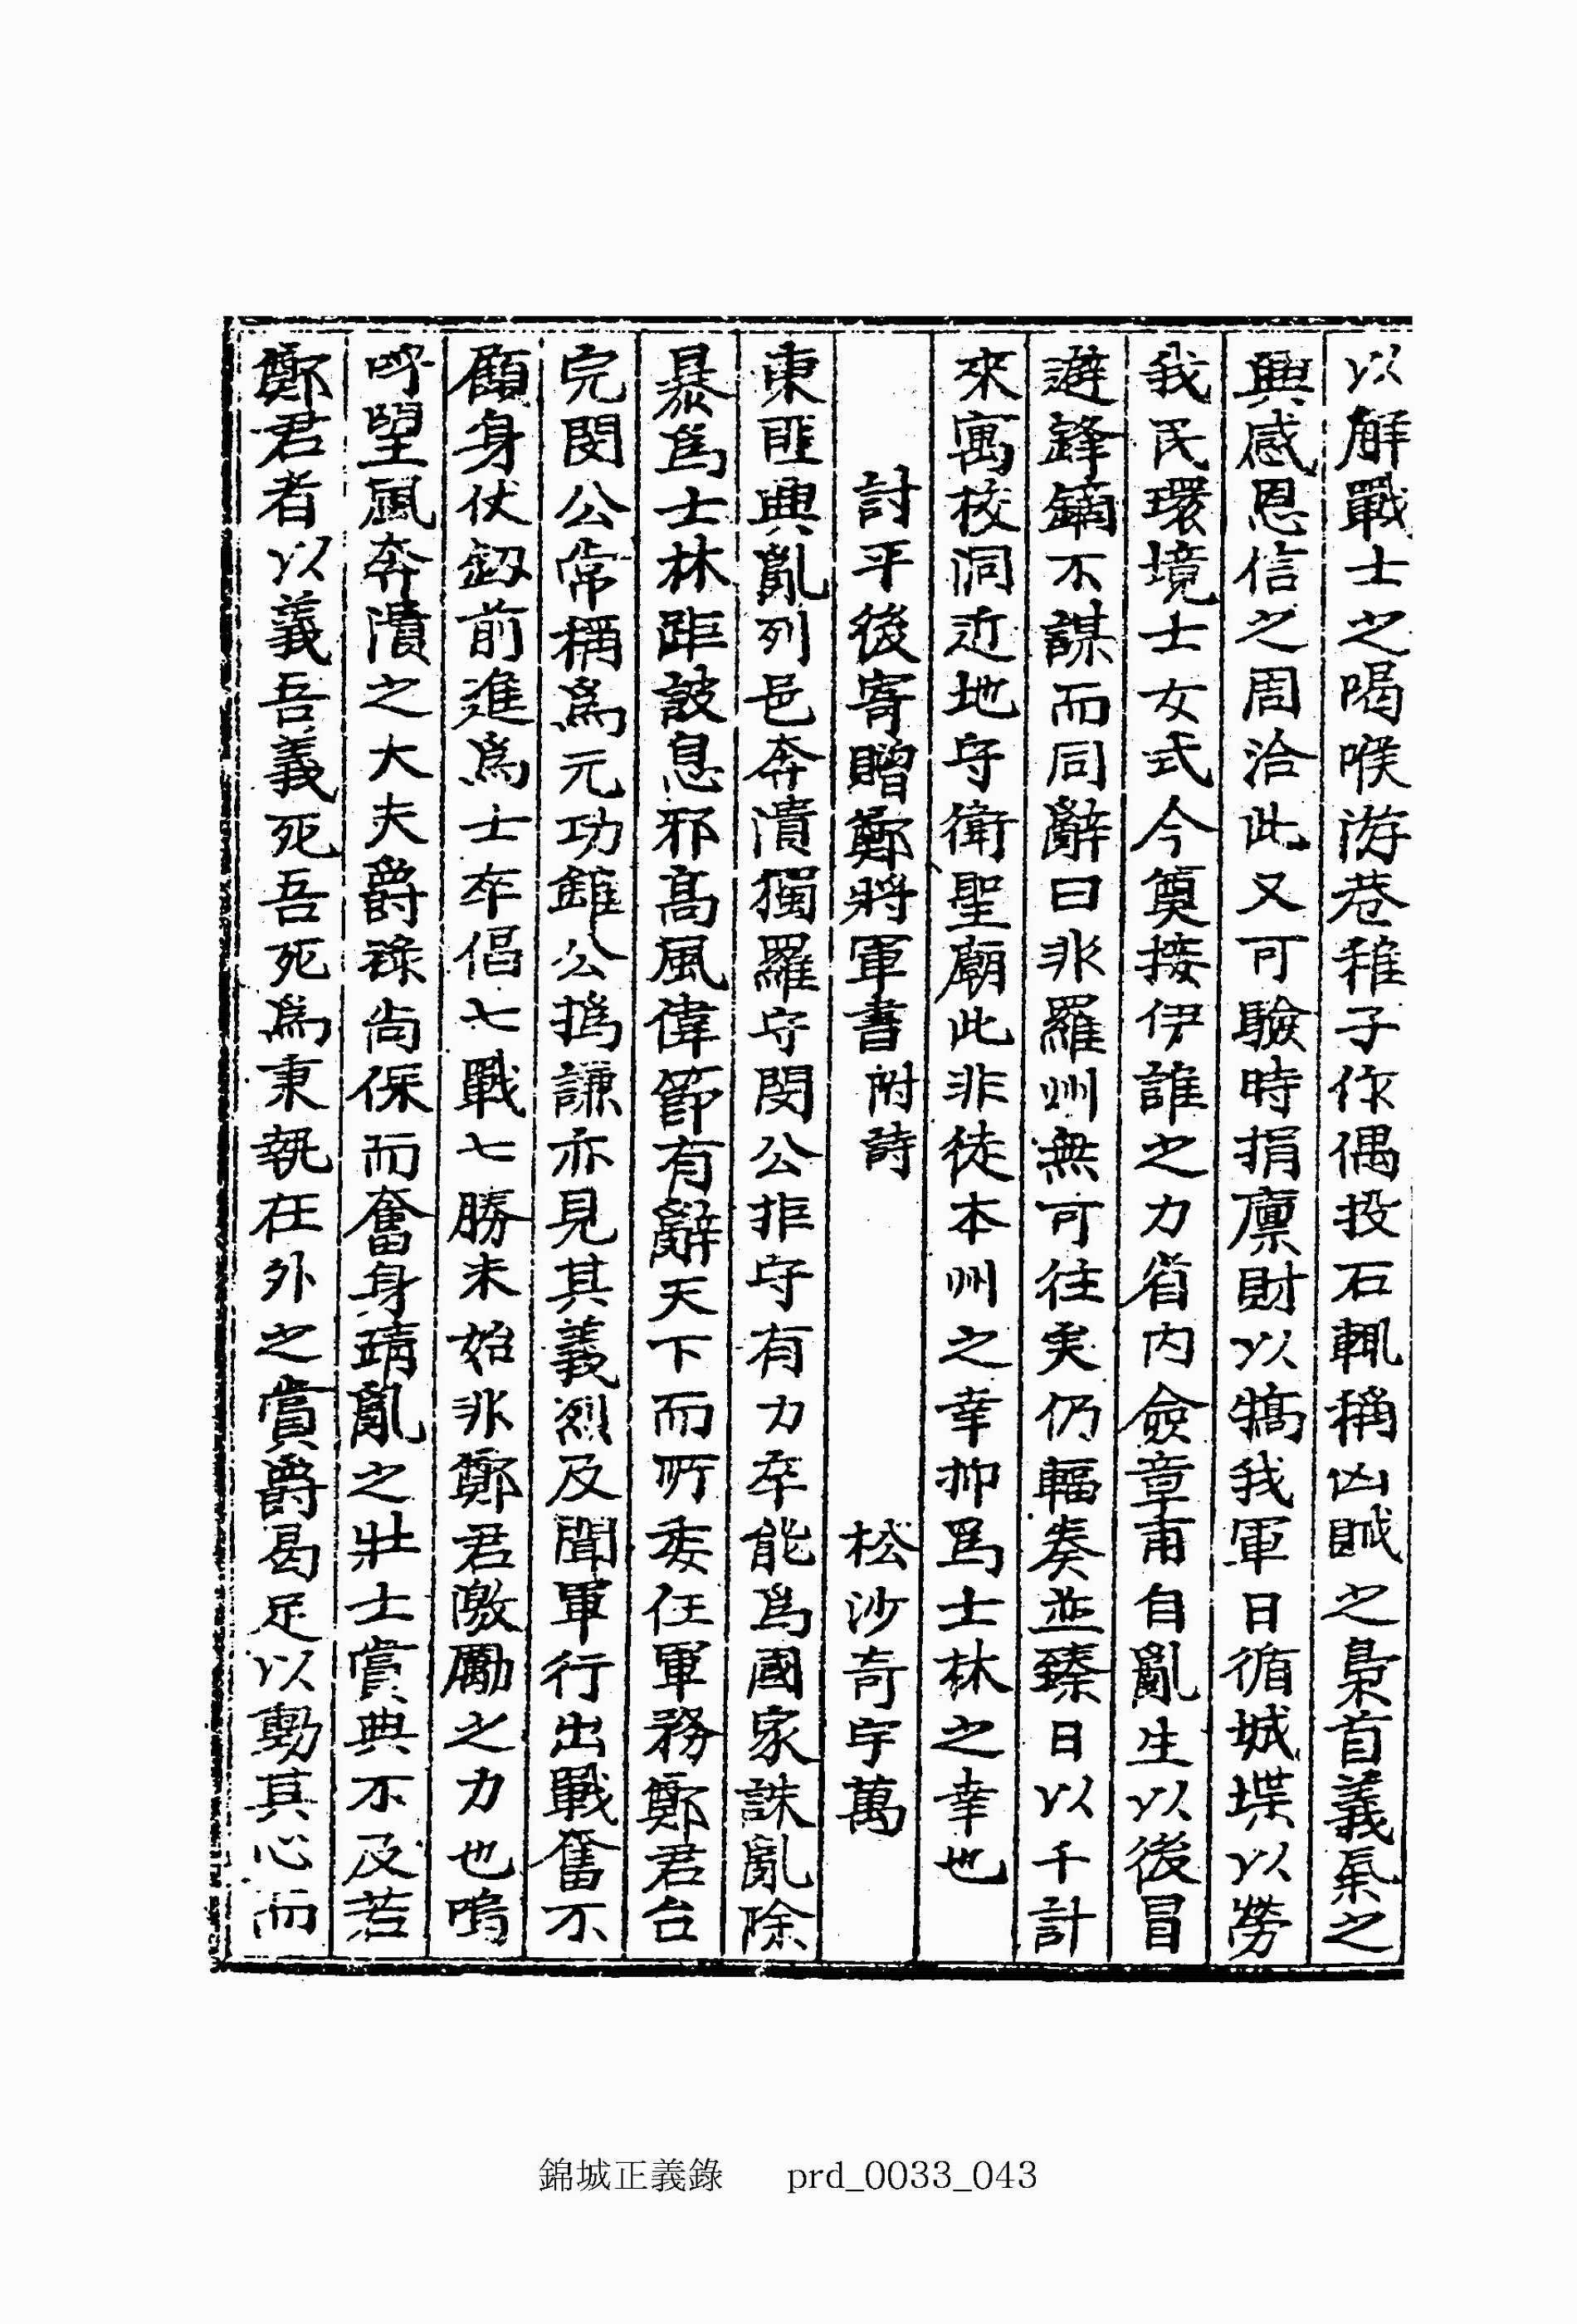 以解戰士之喝喉游巷稚子作偶投石輒稱凶賊之梟首義氣之
興感恩信之周洽此又可驗時捐廩財以犒我軍日循城堞以勞
我民環境士女式今奠接伊誰之力省內僉章甫自亂生以後冒
避鋒鏑不謀而同辭曰非羅州無可往矣仍輻奏並臻日以千計
來寓校洞近地守衛聖廟此非徒本州之幸抑爲士林之幸也
討平後寄贈鄭將軍書附詩 松沙奇宇萬
東匪興亂列邑奔潰獨羅守閔公非守有力卒能爲國家誅亂除
暴爲士林距詖息邪高風偉節有辭天下而所委任軍務鄭君台
完閔公常稱爲元功雖公撝謙亦見其義烈及聞軍行出戰奮不
顧身伏釰前進爲士卒倡七戰七勝未始非鄭君激勵之力也嗚
呼望風奔潰之大夫爵祿尙保而奮身靖亂之壯士賞典不及若
鄭君者以義吾義死吾死爲秉執在外之賞爵曷足以動其心而
錦城正義錄 prd_0033_043